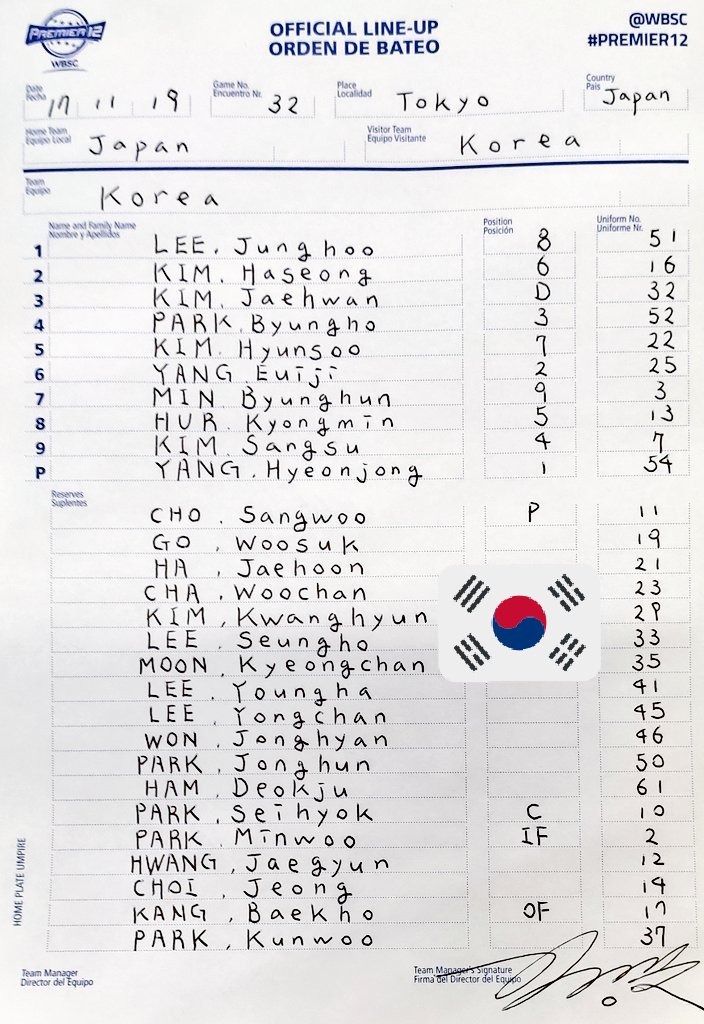 PREMIER 12
WBSC
OFFICIAL LINE-UP
ORDEN DE BATEO
@WBSC
#PREMIER12
Date
Fecha
17 11 19
Game No.
Encuentro Nr.
32
Place
Localidad
Tokyo
Country
País
Japan
Home Team
Equipo Local
Japan
Visitor Team
Equipo Visitante
Korea
Team
Equipo
Korea
Name and Family Name
Nombre y Apellidos
Position
Posición
Uniform No.
Uniforme Nr.
1 LEE. Junghoo 8 51
2 KIM. Haseong 6 16
3 KIM. Jaehwan D 32
4 PARK. Byungho 3 52
5 KIM. Hyunsoo 7 22
6 YANG Euiji 2 25
7 MIN Byunghun 9 3
8 HUR. Kyongmin 5 13
9 KIM. Sangsu 4 7
P YANG. Hyeonjong 1 54
Reserves
Suplentes
CHO. Sangwoo P 11
GO. Woosuk 19
HA. Jaehoon 21
CHA. Woochan 23
KIM, Kwanghyun 29
LEE. Seungho 33
MOON. Kyeongchan 35
LEE. Youngha 41
LEE. Yongchan 45
WON. Jonghyan 46
PARK. Jonghun 50
HAM. Deokju 61
PARK. Seihyok C 10
PARK. Minwoo IF 2
HWANG, Jaegyun 12
CHOI, Jeong 14
KANG, Baekho OF 17
PARK, Kunwoo 37
HOME PLATE UMPIRE
Team Manager
Director del Equipo
Team Manager's Signature
Firma del Director del Equipo